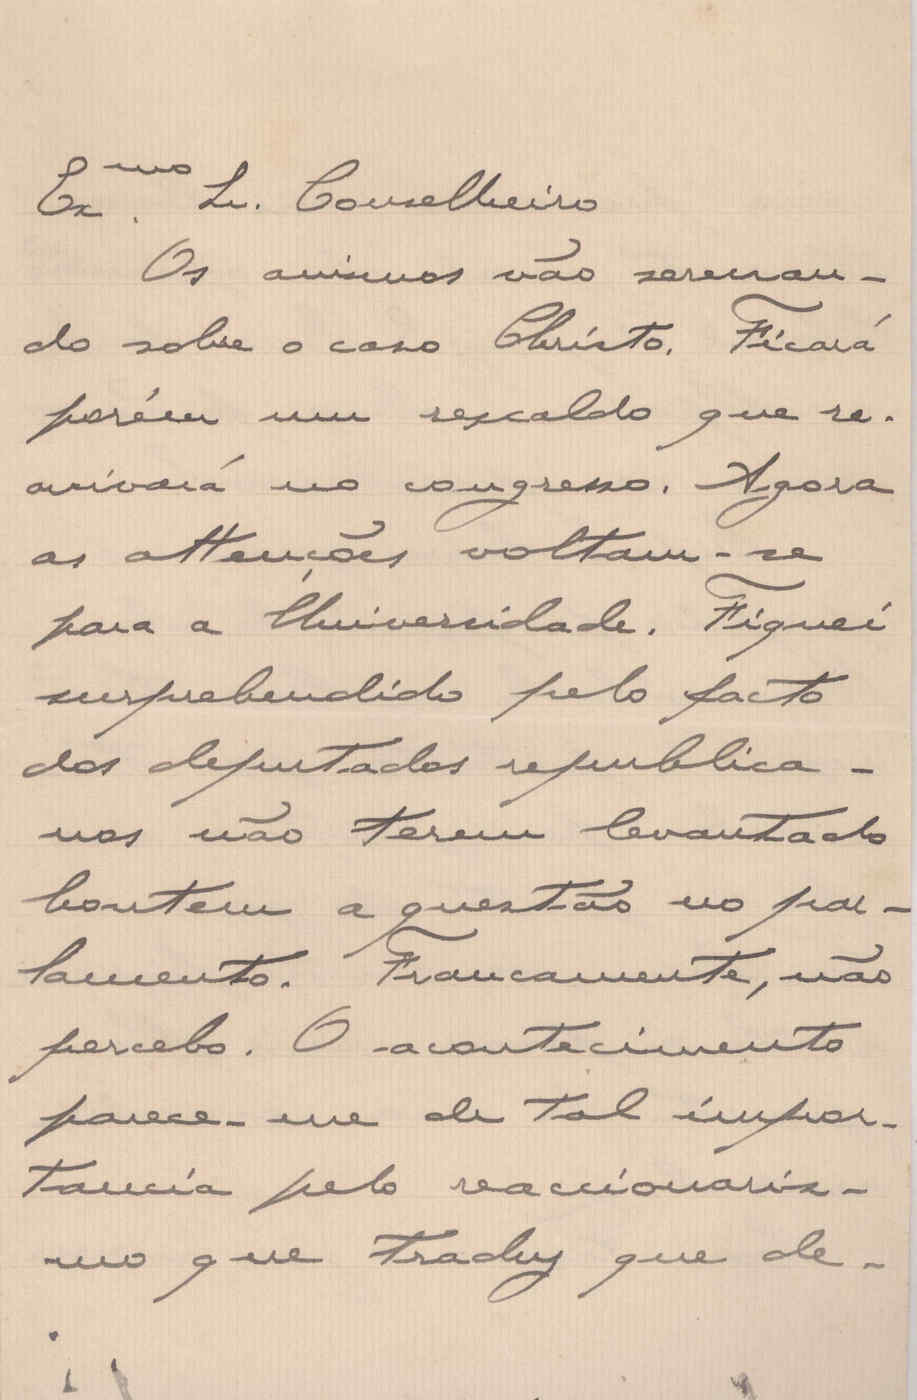 Ex.mo Sr. Conselheiro
Os animos vão serenan-
do sobre o caso Christo. Ficará
porém um rescaldo que re-
avivará no congresso. Agora
as attenções voltam-se
para a Universidade. Fiquei
surprehendido pelo facto
dos deputados republica-
nos não terem levantado
hontem a questão no par-
lamento. Francamente, não
percebo. O acontecimento
parece-me de tal impor-
tancia pelo reaccionaris-
mo que traduz que de-